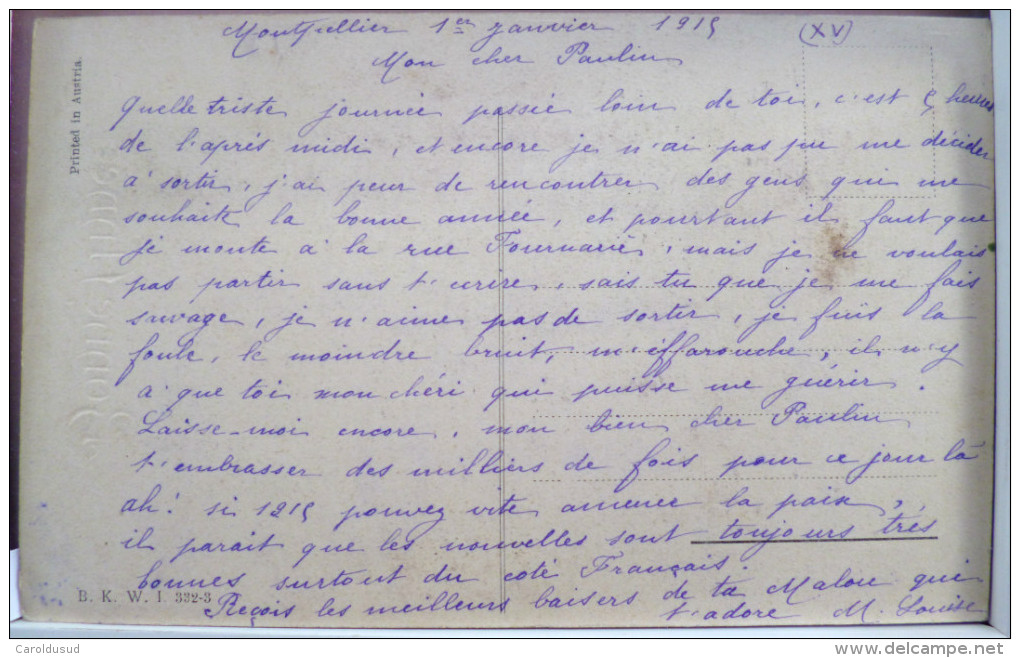 Montpellier 1er janvier 1915 (XV)
Mon cher Paulin
quelle triste journée passée loin de toi, c'est 5 heures
de l'après midi, et encore je n'ai pas pu me décider
a' sortir, j'ai peur de rencontrer des gens qui me
souhaite la bonne année, et pourtant il faut que
je monte a' la rue Fournarié, mais je ne voulais
pas partir sans t'ecrire, sais tu que je me fais
sauvage, je n'aime pas de sortir, je fuis la
foule, le moindre bruit, m'iffarouche, il n'y
a' que toi mon chéri qui puisse me guérir.
Laisse-moi encore, mon bien cher Paulin
t'embrasser des milliers de fois pour ce jour là
ah! si 1915 pouvez vite amener la paix,
il parait que les nouvelles sont toujours très
bonnes surtout du coté Français.
Reçois les meilleurs baisers de ta Malou qui
t'adore M. Louise
Printed in Austria.
B. K. W. I. 332-3
http://www.delcampe.net
Caroldusud